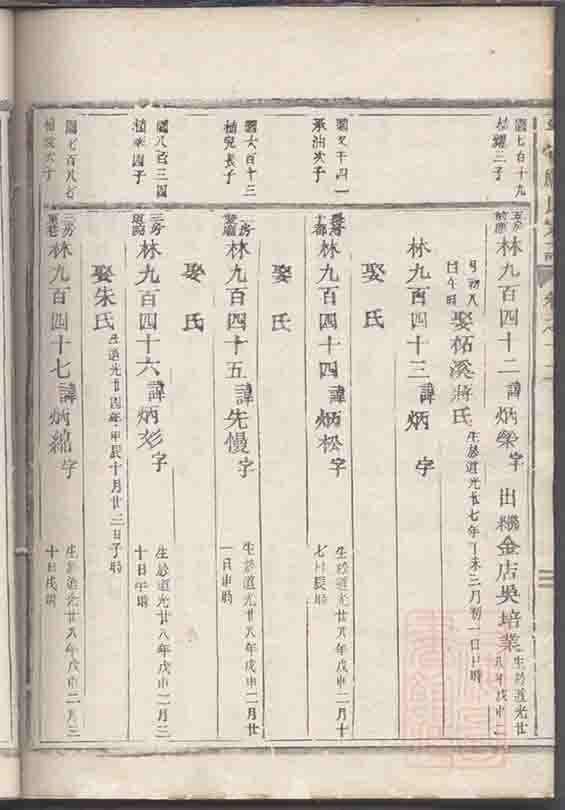 園七百十九
三子
林九百四十二 諱炳榮 字 出繼金店吳培業 生於道光廿八年戊申二
月初八日午時
娶柘溪蔣氏 生於道光廿七年丁未三月初一日日時
林九百四十三 諱炳 字
娶氏
承油次子
林九百四十四 諱炳松 字 生於道光廿八年戊申二月十
七日辰時
娶氏
園六百十三
植完長子
林九百四十五 諱先慢 字 生於道光廿八年戊申二月廿
一日申時
娶氏
園八百三四
四子
三房
林九百四十六 諱炳彭 字 生於道光廿八年戊申二月三
十日午時
娶朱氏 生道光廿四年甲辰十月廿三日子時
園七百八七
次子
三房
林九百四十七 諱炳綿 字 生於道光廿八年戊申二月三
十日戌時